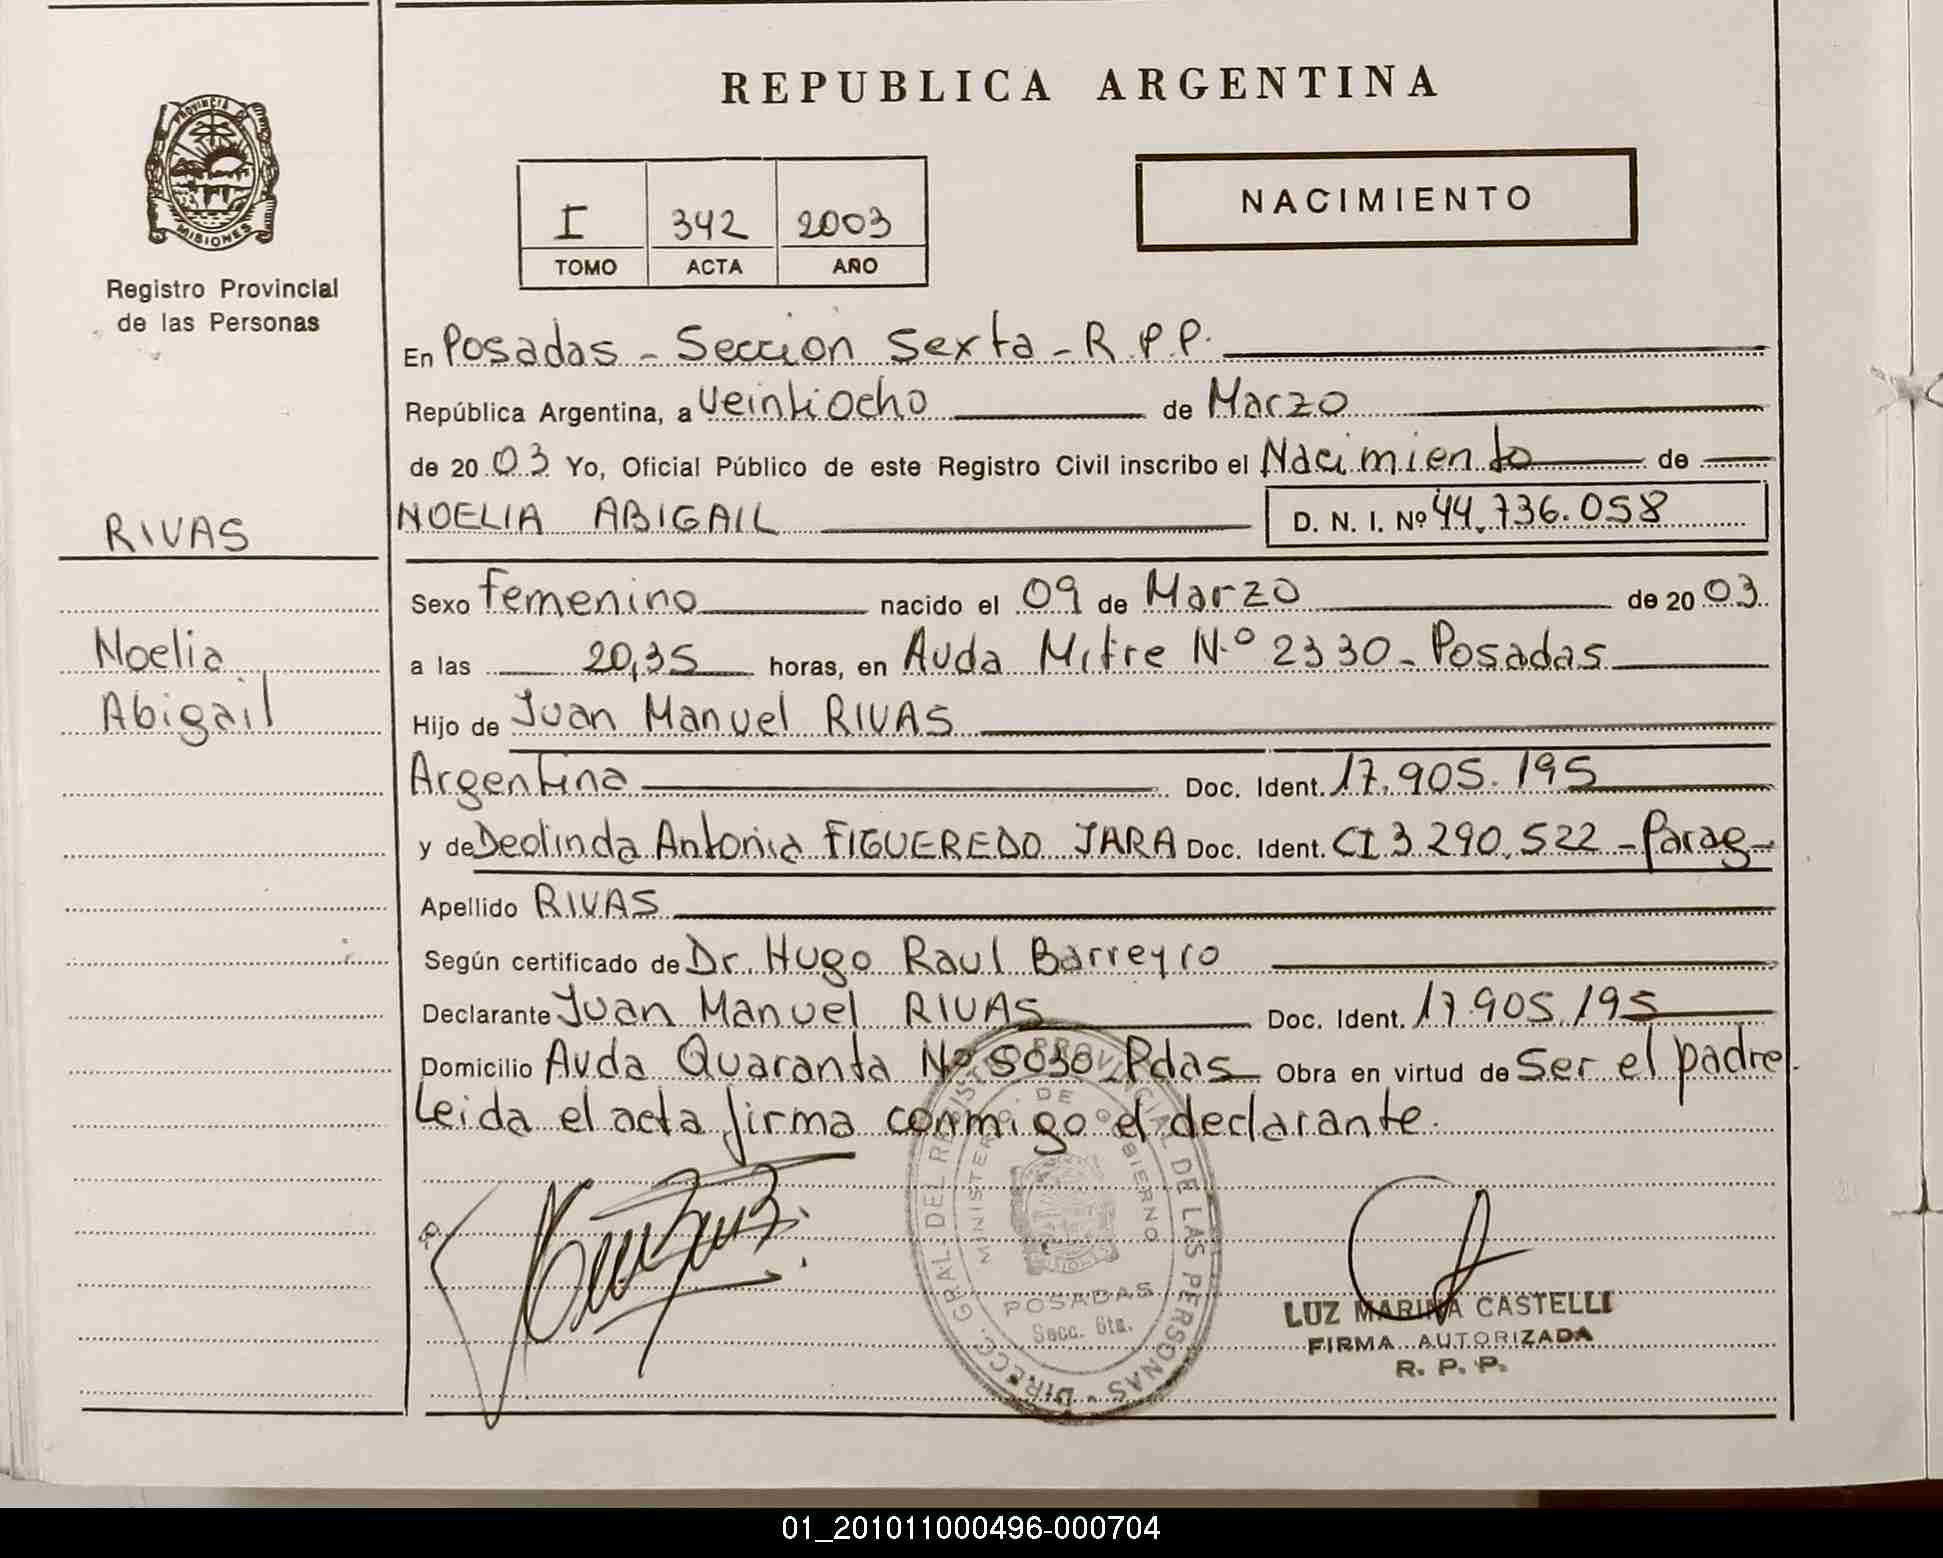 REPUBLICA ARGENTINA
PROVINCIA DE
MISIONES
Registro Provincial
de las Personas
NACIMIENTO
I 342 2003
TOMO ACTA AÑO
En Posadas - Seccion Sexta - R.P.P.
República Argentina, a veintiocho de Marzo
de 2003 Yo, Oficial Público de este Registro Civil inscribo el Nacimiento de
RIVAS
NOELIA ABIGAIL D. N. I. Nº 44.736.058
Sexo femenino nacido el 09 de Marzo de 2003
Noelia
a las 20,35 horas, en Avda Mitre N.º 2330 - Posadas
Abigail
Hijo de Juan Manuel RIVAS
Argentina Doc. Ident. 17.905.195
y de Deolinda Antonia FIGUEREDO JARA Doc. Ident. CI 3 290.522 - Parag-
Apellido RIVAS
Según certificado de Dr. Hugo Raul Barreyro
Declarante Juan Manuel RIVAS Doc. Ident. 17.905.195
Domicilio Avda Quaranta Nº 8030 - Pdas Obra en virtud de Ser el padre.
Leida el acta firma conmigo el declarante.
DIRECC. GRAL. DEL REGISTRO PROVINCIAL DE LAS PERSONAS -
MINISTERIO DE GOBIERNO
POSADAS
Secc. 6ta.
LUZ MARINA CASTELLI
FIRMA AUTORIZADA
R. P. P.
01_201011000496-000704